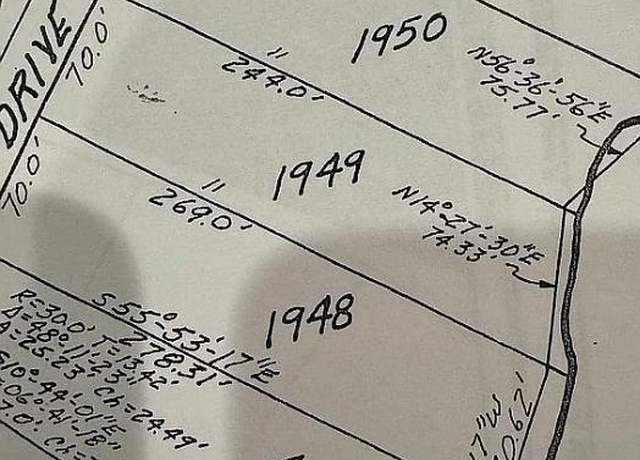 DRIVE
70.0'
1950
N56°-36'-56"E
75.77'
"
244.0'
70.0'
1949
N14°-27'-30"E
74.33'
"
269.0'
1948
S55°-53'-17"E
278.31'
R=30.0' T=13.42'
Δ=48°-11'-23"
A=25.23' Ch=24.49'
S10°-44'-01"E
=06°-41'-18"
7.0' Ch=
17"W
0.62'